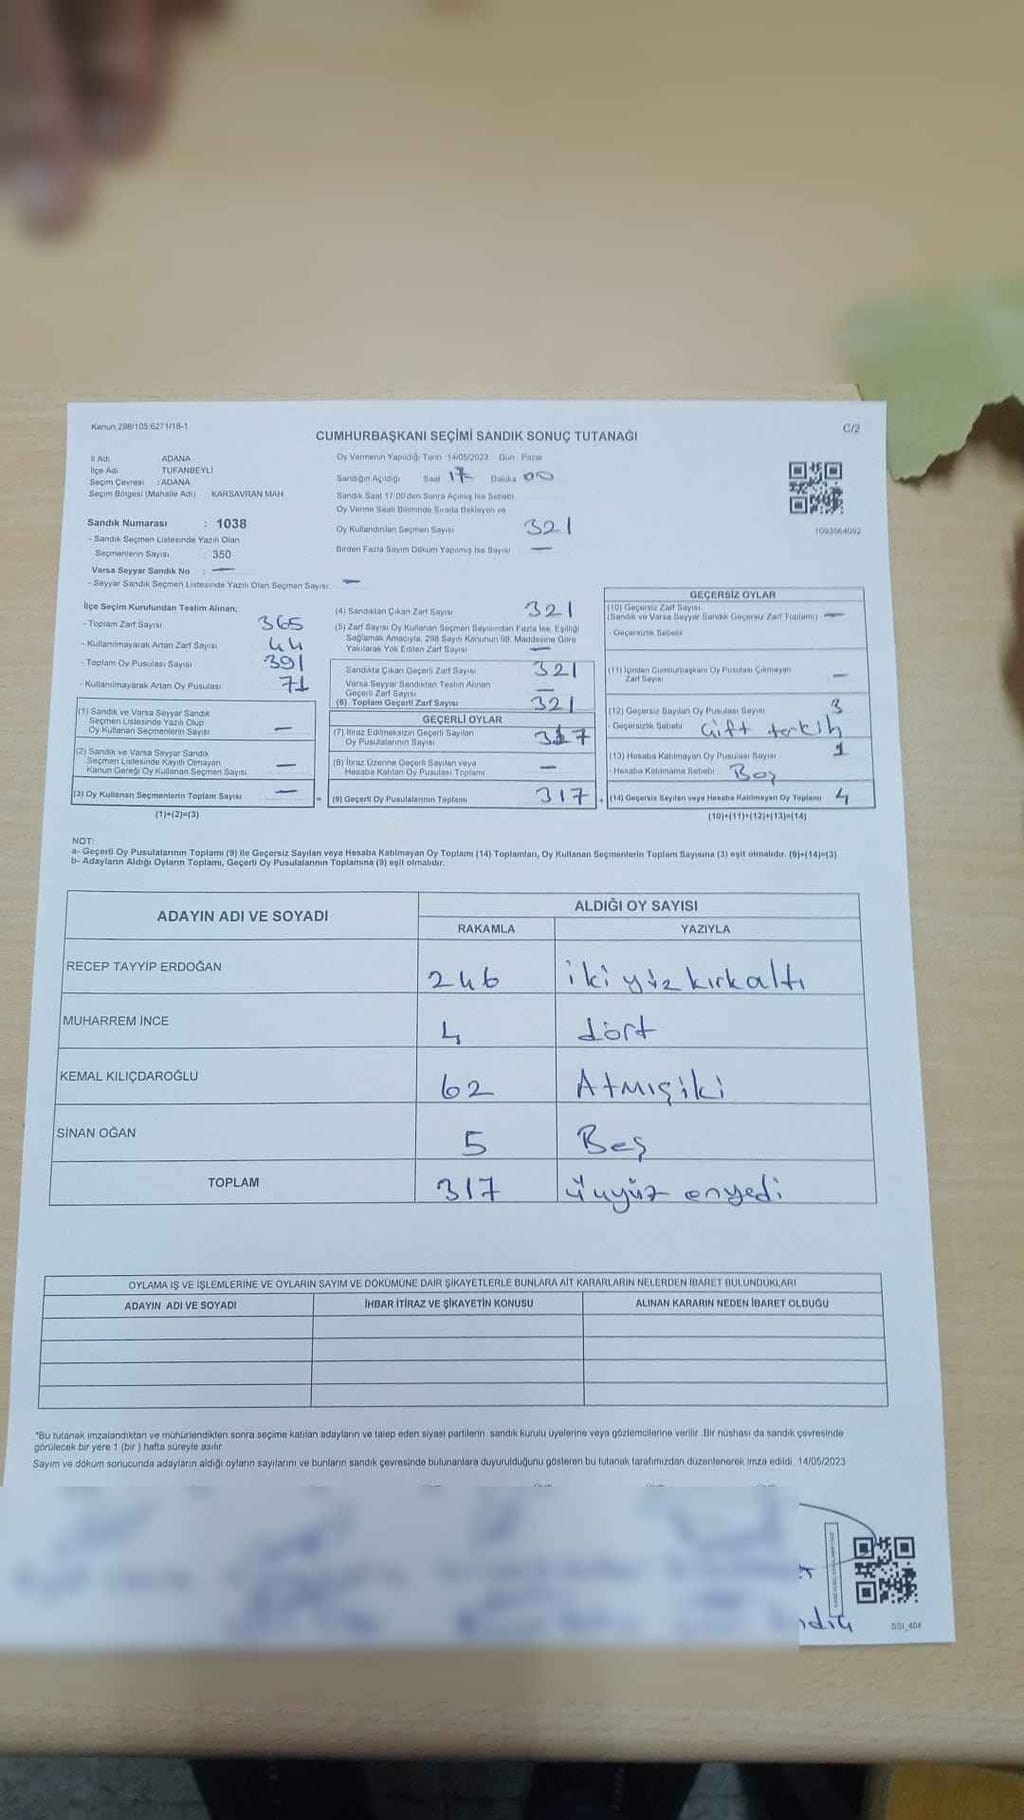 Kanun 298/105 6271/18-1
C/2
CUMHURBAŞKANI SEÇİMİ SANDIK SONUÇ TUTANAĞI
İl Adı ADANA
İlçe Adı TUFANBEYLİ
Seçim Çevresi : ADANA
Seçim Bölgesi (Mahalle Adı) : KARSAVRAN MAH
Sandık Numarası : 1038
- Sandık Seçmen Listesinde Yazılı Olan
Seçmenlerin Sayısı : 350
Varsa Seyyar Sandık No : —
- Seyyar Sandık Seçmen Listesinde Yazılı Olan Seçmen Sayısı: —
Oy Vermenin Yapıldığı Tarih 14/05/2023 Gün: Pazar
Sandığın Açıldığı Saat 17 Dakika 00
Sandık Saat 17:00'den Sonra Açılmış İse Sebebi
Oy Verme Saati Bitiminde Sırada Bekleyen ve
Oy Kullandırılan Seçmen Sayısı 321
Birden Fazla Sayım Döküm Yapılmış İse Sayısı —
1093664092
İlçe Seçim Kurulundan Teslim Alınan;
- Toplam Zarf Sayısı 365
- Kullanılmayarak Artan Zarf Sayısı 44
- Toplam Oy Pusulası Sayısı 391
- Kullanılmayarak Artan Oy Pusulası 71
(1) Sandık ve Varsa Seyyar Sandık
Seçmen Listesinde Yazılı Olup
Oy Kullanan Seçmenlerin Sayısı —
(2) Sandık ve Varsa Seyyar Sandık
Seçmen Listesinde Kayıtlı Olmayan
Kanun Gereği Oy Kullanan Seçmen Sayısı —
(3) Oy Kullanan Seçmenlerin Toplam Sayısı —
(1)+(2)=(3)
(4) Sandıktan Çıkan Zarf Sayısı 321
(5) Zarf Sayısı Oy Kullanan Seçmen Sayısından Fazla İse, Eşitliği
Sağlamak Amacıyla, 298 Sayılı Kanunun 98. Maddesine Göre
Yakılarak Yok Edilen Zarf Sayısı —
Sandıkta Çıkan Geçerli Zarf Sayısı 321
Varsa Seyyar Sandıktan Teslim Alınan
Geçerli Zarf Sayısı —
(6) Toplam Geçerli Zarf Sayısı 321
GEÇERLİ OYLAR
(7) İtiraz Edilmeksizin Geçerli Sayılan
Oy Pusulalarının Sayısı 317
(8) İtiraz Üzerine Geçerli Sayılan veya
Hesaba Katılan Oy Pusulası Toplamı —
= (9) Geçerli Oy Pusulalarının Toplamı 317 +
GEÇERSİZ OYLAR
(10) Geçersiz Zarf Sayısı
(Sandık ve Varsa Seyyar Sandık Geçersiz Zarf Toplamı) —
- Geçersizlik Sebebi
(11) İçinden Cumhurbaşkanı Oy Pusulası Çıkmayan
Zarf Sayısı —
(12) Geçersiz Sayılan Oy Pusulası Sayısı 3
- Geçersizlik Sebebi Çift tercih
(13) Hesaba Katılmayan Oy Pusulası Sayısı 1
- Hesaba Katılmama Sebebi Boş
(14) Geçersiz Sayılan veya Hesaba Katılmayan Oy Toplamı 4
(10)+(11)+(12)+(13)=(14)
NOT:
a- Geçerli Oy Pusulalarının Toplamı (9) ile Geçersiz Sayılan veya Hesaba Katılmayan Oy Toplamı (14) Toplamları, Oy Kullanan Seçmenlerin Toplam Sayısına (3) eşit olmalıdır. (9)+(14)=(3)
b- Adayların Aldığı Oyların Toplamı, Geçerli Oy Pusulalarının Toplamına (9) eşit olmalıdır.
ADAYIN ADI VE SOYADI
ALDIĞI OY SAYISI
RAKAMLA YAZIYLA
RECEP TAYYİP ERDOĞAN 246 iki yüz kırkaltı
MUHARREM İNCE 4 dört
KEMAL KILIÇDAROĞLU 62 Atmışiki
SİNAN OĞAN 5 Beş
TOPLAM 317 üçyüz onyedi
OYLAMA İŞ VE İŞLEMLERİNE VE OYLARIN SAYIM VE DÖKÜMÜNE DAİR ŞİKAYETLERLE BUNLARA AİT KARARLARIN NELERDEN İBARET BULUNDUKLARI
ADAYIN ADI VE SOYADI İHBAR İTİRAZ VE ŞİKAYETİN KONUSU ALINAN KARARIN NEDEN İBARET OLDUĞU
*Bu tutanak imzalandıktan ve mühürlendikten sonra seçime katılan adayların ve talep eden siyasi partilerin sandık kurulu üyelerine veya gözlemcilerine verilir. Bir nüshası da sandık çevresinde
görülecek bir yere 1 (bir ) hafta süreyle asılır.
Sayım ve döküm sonucunda adayların aldığı oyların sayılarını ve bunların sandık çevresinde bulunanlara duyurulduğunu gösteren bu tutanak tarafımızdan düzenlenerek imza edildi. 14/05/2023
SSI_404